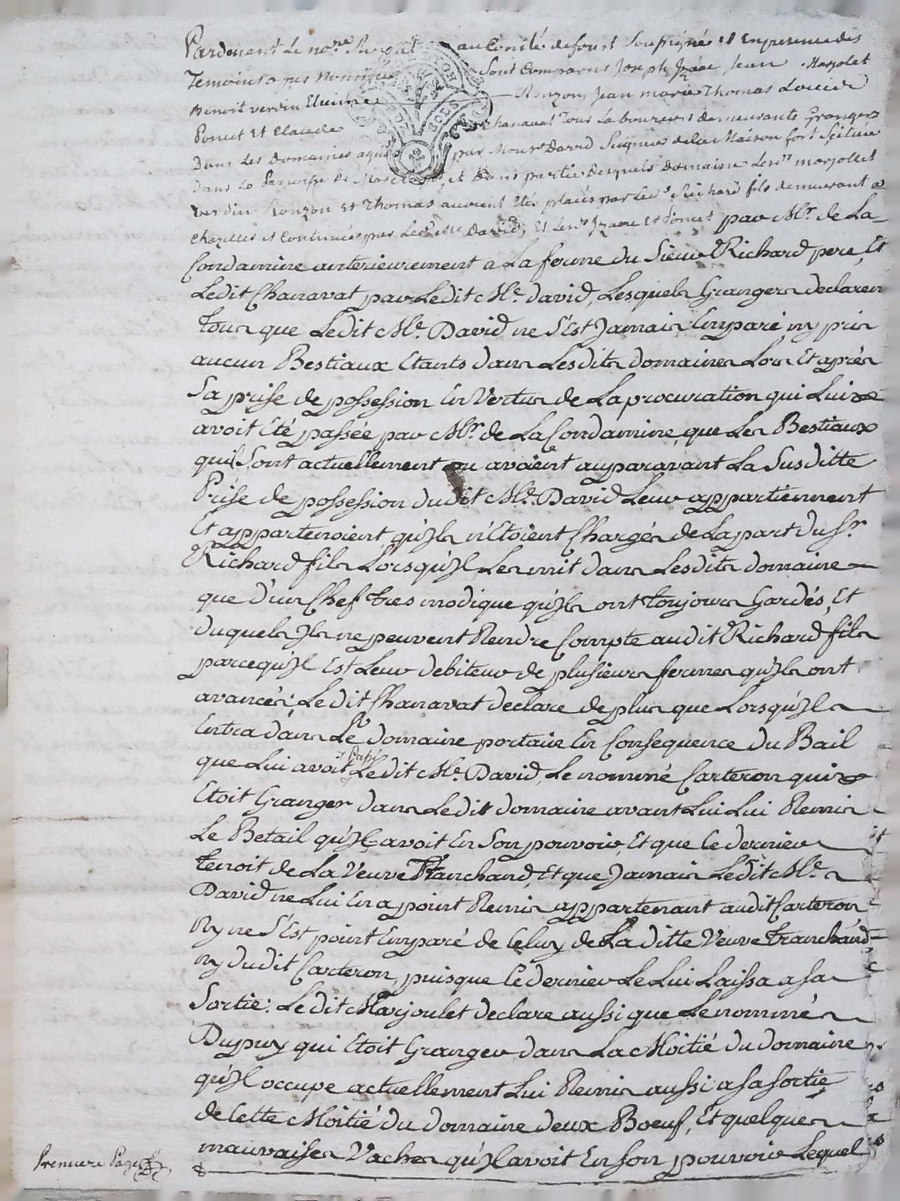 Pardevant Le no.re Royal au Comté de forest Soussigné Et En presence des
Temoins apres Nommés Sont Comparus Joseph Izaac Jean Marjolet
Benoit verdin Etienne Ronzon, Jean marie Thomas Louis
Poncet Et Claude Chanavat Tous Laboureurs demeurants Grangers
Dans Les Domaines par Mons.r David Seigneur de la Maison fort Scituée
Dans La Parroisse de Et Dans partie desquels Domaines Led.t marjollet
Verdin Ronzon Et Thomas avoient Eté placés par Led.t S.r Richard fils demeurant a
Chazelles et Continués par Led.t M.e David, Et Les d.ts Izaac Et Poncet par M.r de La
Condamine anterieurement a La ferme du Sieur Richard pere, Et
Ledit Chanavat par Ledit M.e David, Lesquels Grangers declarent
Tous que Ledit M.e David ne S'Est Jamais Emparé ny pris
aucun Bestiaux Etants dans Lesdits domaines Lors Et après
Sa prise de possession En Vertu de La procuration qui Lui
avoit Eté passée par M.r de La Condamine que Les Bestiaux
qui y Sont actuellement ou avoient auparavant La Susditte
Prise de possession dudit M.e David Leur appartiennent
Et appartenoient qu'ils n'Etoient Chargés de La part du S.r
Richard fils Lorsqu'il Les mit dans Lesdits domaine
que d'un Chef tres modique qu'ils ont toujours Gardés, Et
duquel ils ne peuvent Rendre Compte audit Richard fils
parcequ'il Est Leur debiteur de plusieurs fermes qu'ils ont
avancés: Ledit Chanavat declare de plus que Lorsqu'il
Entra dans Le domaine portaire En Consequence du Bail
que Lui avoit passé Ledit M.e David, Le nommé Carteron qui
Etoit Granger dans Ledit domaine avant Lui Lui Remis
Le Betail qu'il avoit En Son pouvoir Et que ce dernier
tenoit de La Veuve Tranchand, Et que Jamais Ledit M.e
David ne Lui En a point Remis appartenant audit Carteron,
Ny ne S'Est point Emparé de Celuy de La ditte Veuve Tranchand
ny dudit Carteron, puisque Ce dernier Le Lui Laissa a Sa
Sortie: Ledit Marjoulet declare aussi que Le nommé
Dupuy qui Etoit Granger dans La Moitié du domaine
qu'il occupe actuellement Lui Remis aussi a Sa Sortie
de Cette Moitié du domaine deux Boeuf, Et quelques
mauvaises Vaches qu'il avoit En Son pouvoir Lequel
Premiere Page